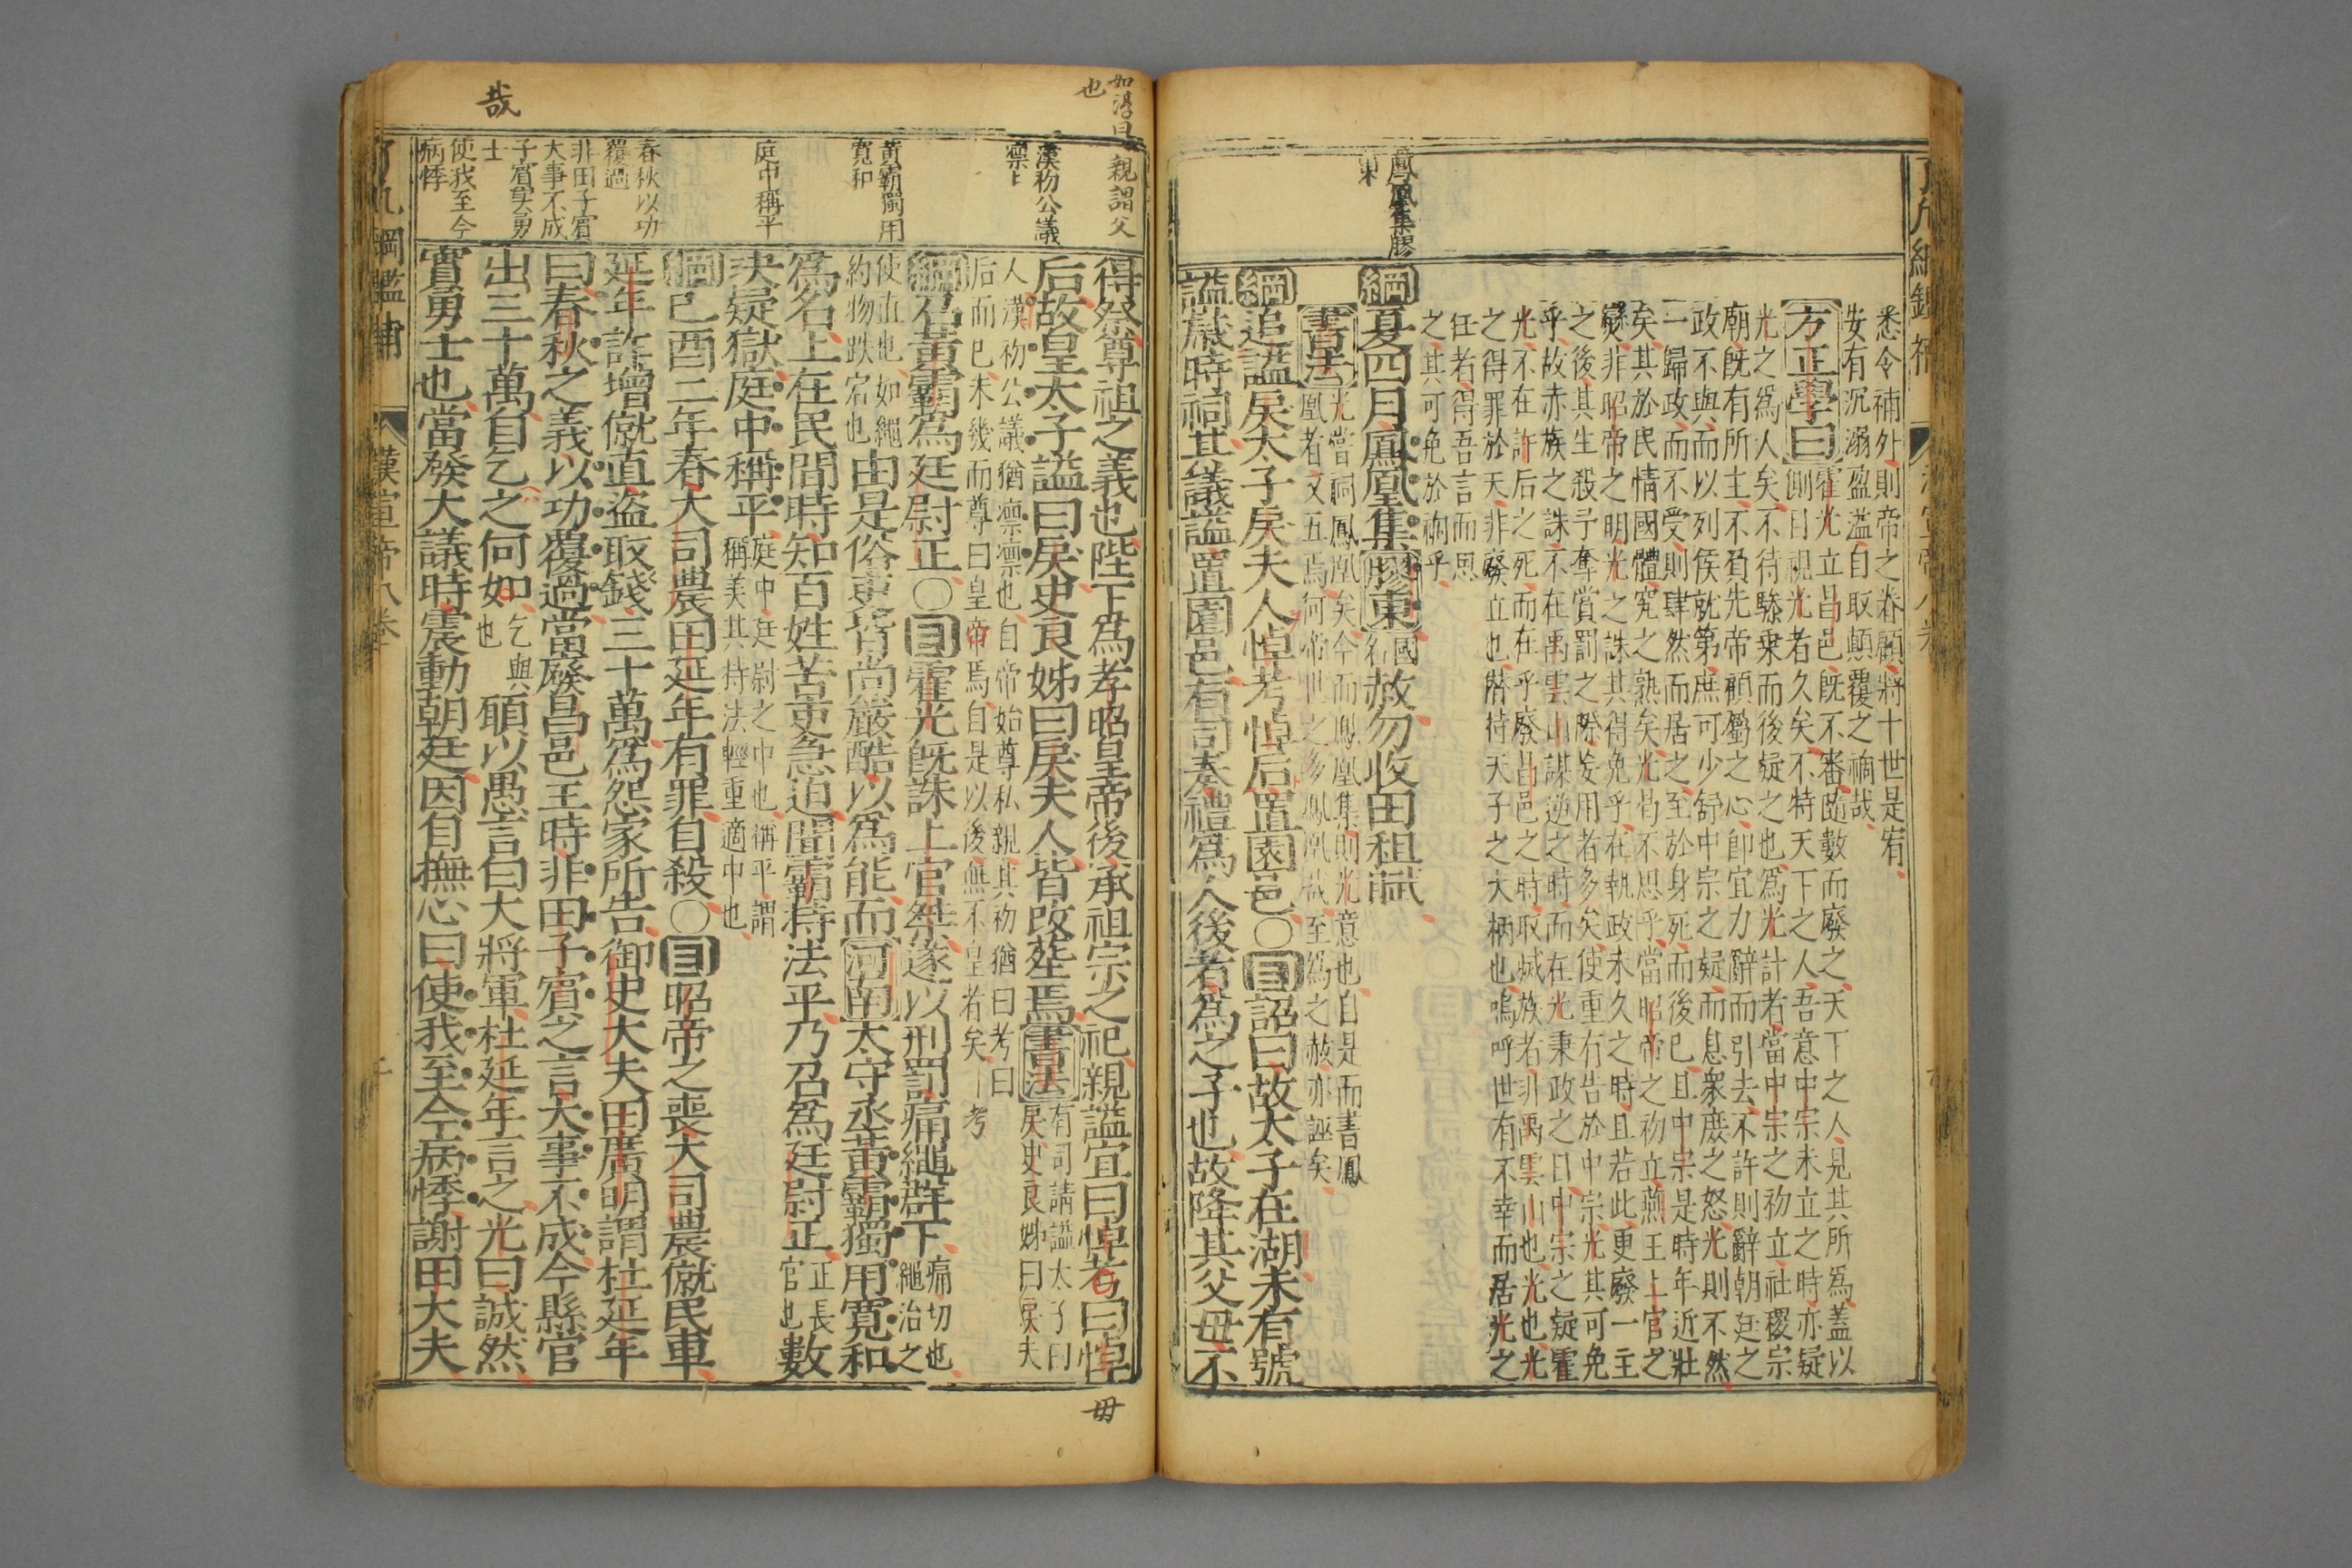 鳳凰集膠
東
悉令補外則帝之眷顧將十世是宥
安有沉溺盈溢自取顛覆之禍哉
方正學曰霍光立昌邑既不審而廢之天下之人見其所為蓋以
側目視光者久矣不特天下之人吾意中宗未立之時亦疑
光之為人矣不待驂乗而後疑之也為光計者當中宗之初立社稷宗
廟既有所主不負先帝顧屬之心即宜力辭而引去不許則辭朝廷之
政不與而以列侯就第庶可少舒中宗之疑而息衆庶之怒光則不然
一歸政而不受則肆然而居之至於身死而後已且中宗是時年近壯
矣其於民情國體究之熟矣光皆不思乎當昭帝之初立燕王上官之
變非昭帝之明光之誅其得免乎在執政未久之時且若此更廢一主
之後其生殺予奪賞罰之際妄用者多矣使重有告於中宗光其可免
乎故赤族之誅不在禹雲山謀逆之時而在光秉政之日中宗之疑霍
光不在許后之死而在乎廢昌邑之時取烕族者非禹雲山也光也光
之得罪於天非廢立也階持天子之大柄也嗚呼世有不幸而居光之
任者得吾言而思
之其可免於禍乎
綱夏四月鳳凰集膠東國名赦勿收田租賦
書法光嘗祠鳳凰矣今而鳳凰集則光意也自是而書鳳
凰者又五焉何帝世之多鳳凰哉至為之赦亦誣矣
綱追謚戾太子戾夫人悼考悼后置園邑○目詔曰故太子在湖未有號
謚歲時祠其議謚置園邑有司奏禮為人後者為之子也故降其父母不
如淳曰親謂父
也
漢初公議
凛凛
黃霸獨用
寬和
庭中稱平
春秋以功
覆過
非田子賓
大事不成
子賓真勇
士
使我至今
病悸
哉
得祭尊祖之義也陛下為孝昭皇帝後承祖宗之祀親謚宜曰悼考曰悼
后故皇太子謚曰戾史良娣曰戾夫人皆改塟焉書法有司請謚太子曰
戾史良娣曰戾夫
人漢初公議猶凛凛也自帝始尊私親其初猶曰考曰
后而已未幾而尊曰皇帝焉自是以後無不皇考者矣
綱召黃霸為廷尉正○目霍光既誅上官桀遂以刑罰痛繩群下痛切也
繩治之
使直也如繩
約物跌宕也由是俗吏皆尚嚴酷以為能而河南太守丞黃霸獨用寬和
為名上在民間時知百姓苦吏急迫聞霸持法平乃召為廷尉正正長
官也數
决疑獄庭中稱平庭中廷尉之中也稱平謂
稱美其持法輕重適中也
綱己酉二年春大司農田延年有罪自殺○目昭帝之喪大司農僦民車
延年詐增僦直盜取錢三十萬為怨家所告御史大夫田廣明謂杜延年
曰春秋之義以功覆過當廢昌邑王時非田子賓之言大事不成今縣官
出三十萬自乞之何如乞與也願以愚言曰大將軍杜延年言之光曰誠然
實勇士也當發大議時震動朝廷因自撫心曰使我至今病悸謝田大夫
毋